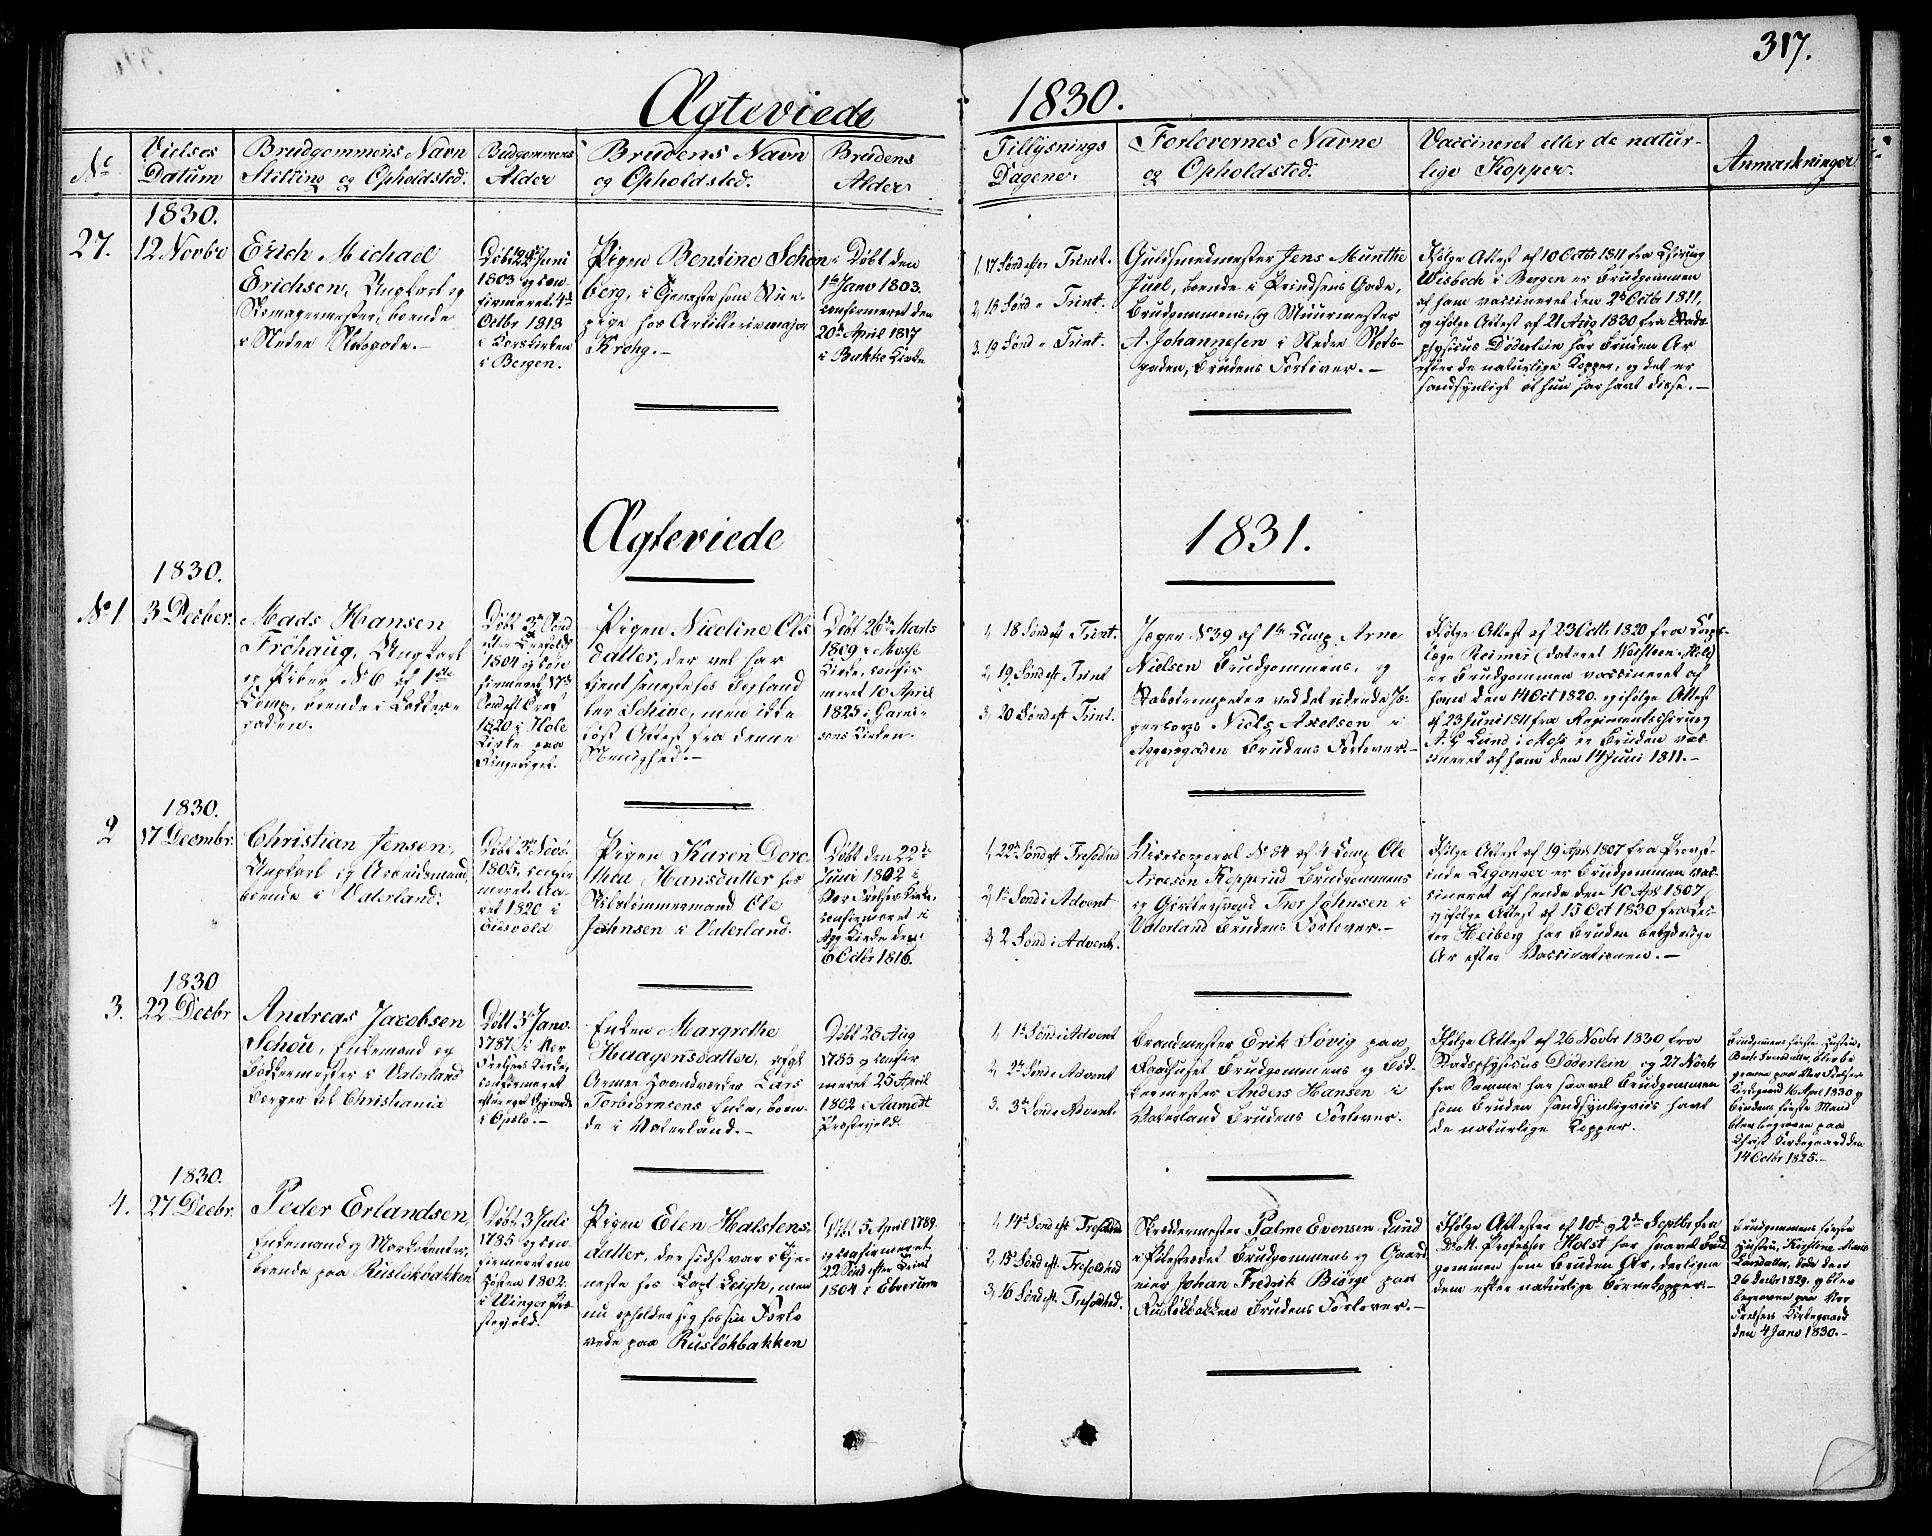 317.
Ægteviede 1830.
No
Vielses Datum
Brudgommens Navn
Stilling og Opholdsted.
Budgommens
Alder
Brudens Navn
og Opholdsted.
Brudens
Alder
Tillysnings
Dagene.
Forlovernes Navne
og Opholdsted.
Vaccineret eller de natur-
lige Kopper.
Anmærkninger
27.
1830.
12 Novbr
Erich Michael
Erichsen, Ungkarl og
Skomagermester, boende
i Nedre Slotsgade.-
1803 og con
firmeret 4de
Octbr 1818
i Korskirken
i Bergen.
Pigen Bentine Schön-
berg, i Tjeneste som Stue-
pige hos Artillerimajor
Krohg.-
Døbt den
1te Janv 1803.
confirmeret den
20de April 1817
i Bakke Kirke
1, 17 Sønd efter Trinit.
2, 18 Sønd " Trint.
3. 19 Sønd " Trint.
Guldsmedmester Jens Munthe
Juel, boende i Prindsens Gade,
Brudgommens, og Muurmester
A. Johannesen i Nedre Slots-
gaden, Brudens Forlover.-
Ifølge Attest af 10 Octbr 1811 fra Chirurg
Wisbech i Bergen er Brudgommen
af ham vaccineret den 2d Octbr 1811,
og ifølge Attest af 21 Aug 1830 fra Stads-
physicus Döderlein har Bruden Ar
efter de naturlige Kopper, og det er
sandsynligt at hun har havt disse.-
Ægteviede 1831.
No 1
1830.
3 Decber.
Mads Hansen
Fröhaug, Ungkarl
og Piber N 6 af 1ste
Comp, boende i
gaden.
Døbt 3de Sønd
1804 og con
firmeret 17d
1820 i Hole
Kirke paa
Ringerige.
Pigen Nicoline Ols
datter, der vel har
tjent hos
Schive, men ikke
løst Attest fra denne
Menighed.-
Døbt 26de Marts
1809 i Mosse
Kirke, confir
meret 10 April
1825 i Garni-
sons Kirken.
1, 18 Sønd eft Trint.
2, 19 Sønd eft Trint
3, 20 Sønd eft Trint.
Jæger No 39 af 1ste Comp. Arne
Nielsen Brudgommens, og
Stabstrompeter ved det ridende Jæ-
gercorps Niels Axelsen i
Aggersgaden Brudens Forlover.-
Ifølge Attest af 23 Octbr 1820 fra Corps-
læge Reimers
er Brudgommen vaccineret af
ham den 14 Oct 1820. og ifølge Attest
af 23 Juni 1811 fra Regimentschirurg
A. G Lund i Moss er Bruden vac
cineret af ham den 14 Juni 1811.-
2
1830.
17 Decembr.
Christian Jensen,
Ungkarl og Arbeidsmand,
boende i Vaterland.
1805, confir
meret Aa-
ret 1820 i
Eidsvold
Pigen Karen Doro
thea Hansdatter hos
Skibstømmermand Ole
Johnsen i Vaterland.
Døbt den 22de
Juni 1802 i
Vor Frelsers Kirke,
confirmeret i
Agg Kirke den
6 Octbr 1816.
1, 22de Sønd eft Trefoldhed
2, 1ste Sønd i Advent
3, 2 Sønd i Advent.
No 84 af 4 Comp Ole
Arvesen Kopperud Brudgommens
og Thor Johnsen i
Vaterland Brudens Forlover.-
Ifølge Attest af 19 Apr 1807 fra Provst-
inde Leganger er Brudgommen vac-
cineret af hende den 10 Apr 1807,
og ifølge Attest af 15 Oct 1830 fra Doc-
tor Heiberg har Bruden betydelige
Ar efter Vaccinationen.-
3.
1830
22 Decbr
Andreas Jacobsen
Schou, Enkemand og
Bødkermester i Vaterland
Borger til Christiania
Døbt 3d Janv.
1787 i Vor
Frelsers Kirke,
confirmeret
i Opslo.-
Enken Margrethe
Haagensdatter, afgl
Arme Haandværker Lars
Torbiörnsens Enke, boen-
de i Vaterland.-
Døbt 28 Aug
1785 og confir
meret 25 April
1802 i Aamodt
Præstegjeld.
1, 1ste Sønd i Advent
2, 2de Sønd i Advent
3. 3de Sønd i Advent.
Brandmester Erik Lövig paa
Raadhuset Brudgommens og Bød-
kermester Anders Hansen i
Vaterland Brudens Forlover.
Ifølge Attest af 26 Novbr 1830 fra
Stadsphysicus Döderlein og 27 Novbr
fra Samme har saavel Brudgommen
som Bruden sandsynligviis havt
de naturlige Kopper.
Brudgommens første Hustru,
blev be
graven paa Vor Frelsers
Kirkegaard 16 Apr 1830 og
Brudens første Mand
blev begraven paa
Christ Kirkegaard den
14 Octbr 1825.-
4.
1830.
27 Decbr.
Peder Erlandsen,
Enkemand og Marketenter,
boende paa Ruslökbakken
Døbt 3 Juli
1785 og con
firmeret om
Høsten 1802.
i Winger Præ
stegjeld.
Pigen Elen Halstens-
datter, der sidst var i Tje-
neste hos Capt Leigh, men
nu opholder sig hos sin Forlo
vede paa Ruslökbakken
Døbt 5 April 1789.
og confirmeret
22 Sønd efter Trint
1804 i Elverum
1, 14de Sønd eft Trefoldhed
2, 15de Sønd eft. Trefoldhed
3, 16 Sønd eft. Trefoldhed.
Skræddermester Palme Evensen Lund
i Pilestrædet Brudgommens og Gaard
eier Johan Fredrik Biörge paa
Ruslökbakken Brudens Forlover.-
Ifølge Attester af 10de og 2de Septbr fra
Dr M. Professor Holst har saavel Brud
gommen som Bruden Ar, der ligne
dem efter naturlige Børnekopper-
Brudgommens første
Hustru, Kirstine Marie
Larsdatter, døde den
26 Decbr 1829. og blev
begraven paa Vor
Frelsers Kirkegaard
den 4 Janv 1830.-